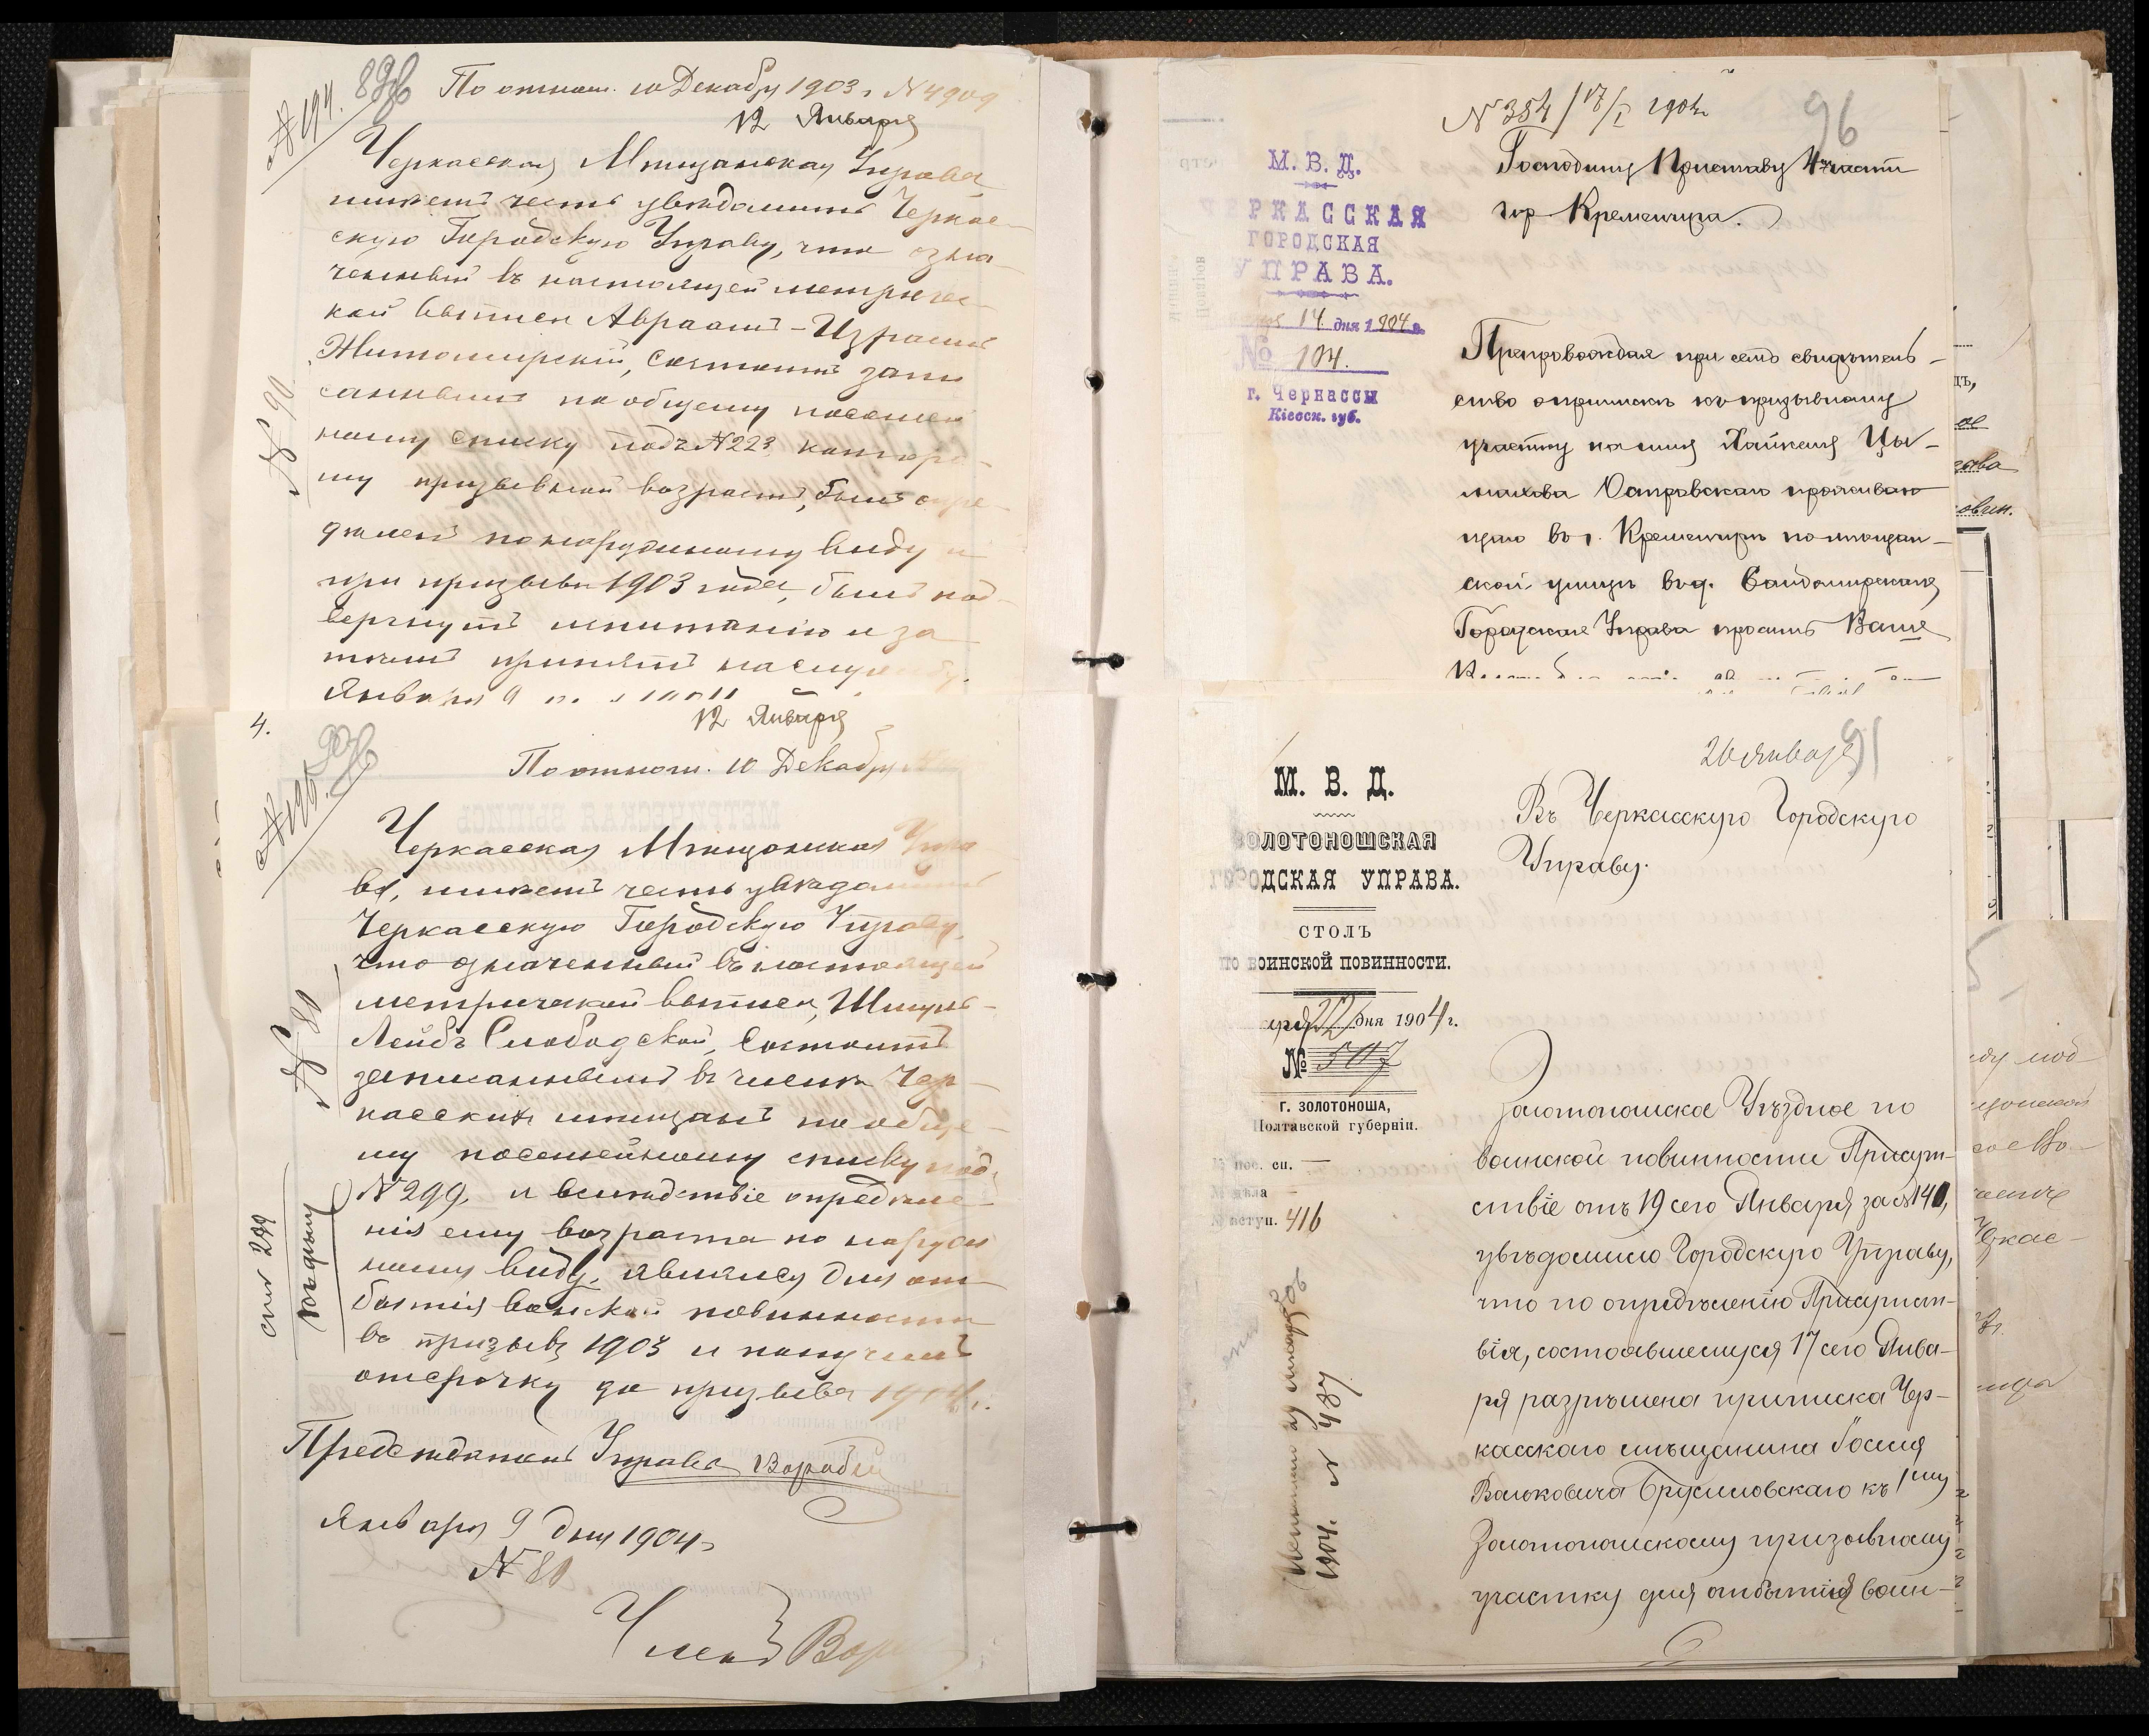 № 194.
По отнош. 10 Декабру 1903 г. № 4909
12 Января
Черкасская Мещанская Управа
имеетъ честь увѣдомить Черкас-
скую Городскую Управу, что озна-
ченный въ настоящей метричес-
кой выписи Авраамъ-Израиль
Житомирскій, состоитъ запи
саннымъ по общему посемей
ному списку подъ № 223, котора-
му призывной возрастъ, былъ опре-
дѣленъ по наружному виду и
при призывѣ 1903 года, былъ под-
вергнутъ испытанію и за
тѣмъ принятъ на службу.
Января 9
№ 90
4.
12 Января
По отнош. 10 Декабру
№ 195.
Черкасская Мещанская Упра
ва, имѣетъ честь увѣдомить
Черкасскую Городскую Управу,
что означенный въ настоящей
метрической выписи, Шмуль-
Лейбъ Слободской, состоитъ
записаннымъ въ числѣ Чер-
касскихъ мѣщанъ по обще-
му посемейному списку подъ
№ 299, и вслѣдствіе опредѣле
нія ему возраста по наруж
ному виду, явился для от
бытія воинской повинности
въ призывъ 1903 и получилъ
отсрочку до призыва 1904 г.
Предсѣдатель Управы Воробей
Января 9 дня 1904 г.
№ 80
Членъ
№ 80
№ 384 / 17/I 1904 г.
96
М. В. Д.
ЧЕРКАССКАЯ
ГОРОДСКАЯ
УПРАВА.
14 дня 1904 г.
№ 104.
г. Черкассы
Кіевск. губ.
Господину Приставу 4 части
гор. Кременчуга.
Препровождая при семъ свидѣтель-
ство о припискѣ къ призывному
участку на имя Хайкеля Цы-
малова Островскаго проживаю
щаго въ г. Кременчугѣ по мѣщан-
ской улицѣ въ д. Сандомирскаго
Городская Управа проситъ Ваше
26 Января
91
М. В. Д.
ЗОЛОТОНОШСКАЯ
ГОРОДСКАЯ УПРАВА.
СТОЛЪ
ПО ВОИНСКОЙ ПОВИННОСТИ.
аря 22 дня 1904 г.
№ 507
г. ЗОЛОТОНОША,
Полтавской губерніи.
№ пос. сп. —
№ дѣла —
№ вступ. 416
Въ Черкасскую Городскую
Управу.
Золотоношское Уѣздное по
воинской повинности Присут-
ствіе отъ 19 сего Января за № 140,
увѣдомило Городскую Управу,
что по опредѣленію Присутст-
вія, состоявшемуся 17 сего Янва-
ря разрѣшена приписка Чер-
касскаго мѣщанина Іосия
Вольковича Брусиловскаго къ 1му
Золотоношскому призывному
участку для отбытія воин-
1904 г. № 487